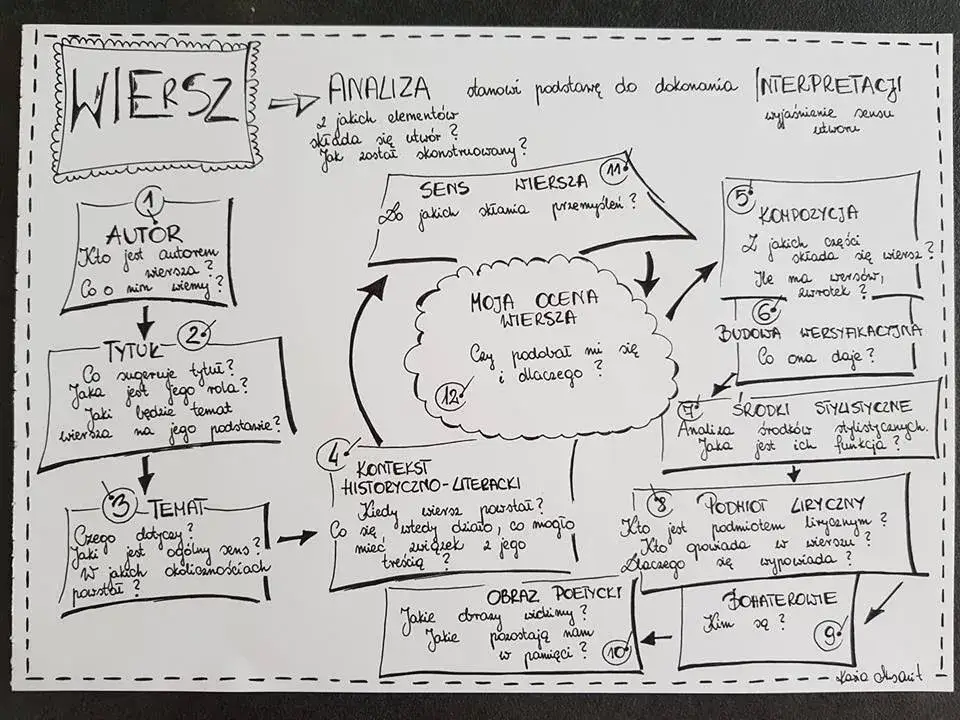 WIERSZ
ANALIZA stanowi podstawę do dokonania INTERPRETACJI
z jakich elementów
składa się utwór?
Jak został skonstruowany?
wyjaśnienie sensu
utworu
1
AUTOR
Kto jest autorem
wiersza?
Co o nim wiemy?
2
TYTUŁ
Co sugeruje tytuł?
Jaka jest jego rola?
Jaki będzie temat
wiersza na jego podstawie?
3
TEMAT
Czego dotyczy?
Jaki jest ogólny sens?
W jakich okolicznościach
powstał?
4
KONTEKST
HISTORYCZNO-LITERACKI
Kiedy wiersz powstał?
Co się wtedy działo, co mogło
mieć związek z jego
treścią?
5
KOMPOZYCJA
Z jakich części
składa się wiersz?
Ile ma wersów,
zwrotek?
6
BUDOWA WERSYFIKACYJNA
Co ona daje?
7
ŚRODKI STYLISTYCZNE
Analiza środków stylistycznych.
Jaka jest ich funkcja?
8
PODMIOT LIRYCZNY
Kto jest podmiotem lirycznym?
Kto opowiada w wierszu?
Dlaczego się wypowiada?
BOHATEROWIE
Kim są?
9
OBRAZ POETYCKI
Jakie obrazy widzimy?
Jakie pozostają nam
w pamięci?
10
11
SENS WIERSZA
Do jakich skłania przemyśleń?
MOJA OCENA
WIERSZA
Czy podobał mi się
i dlaczego?
12
Kasia